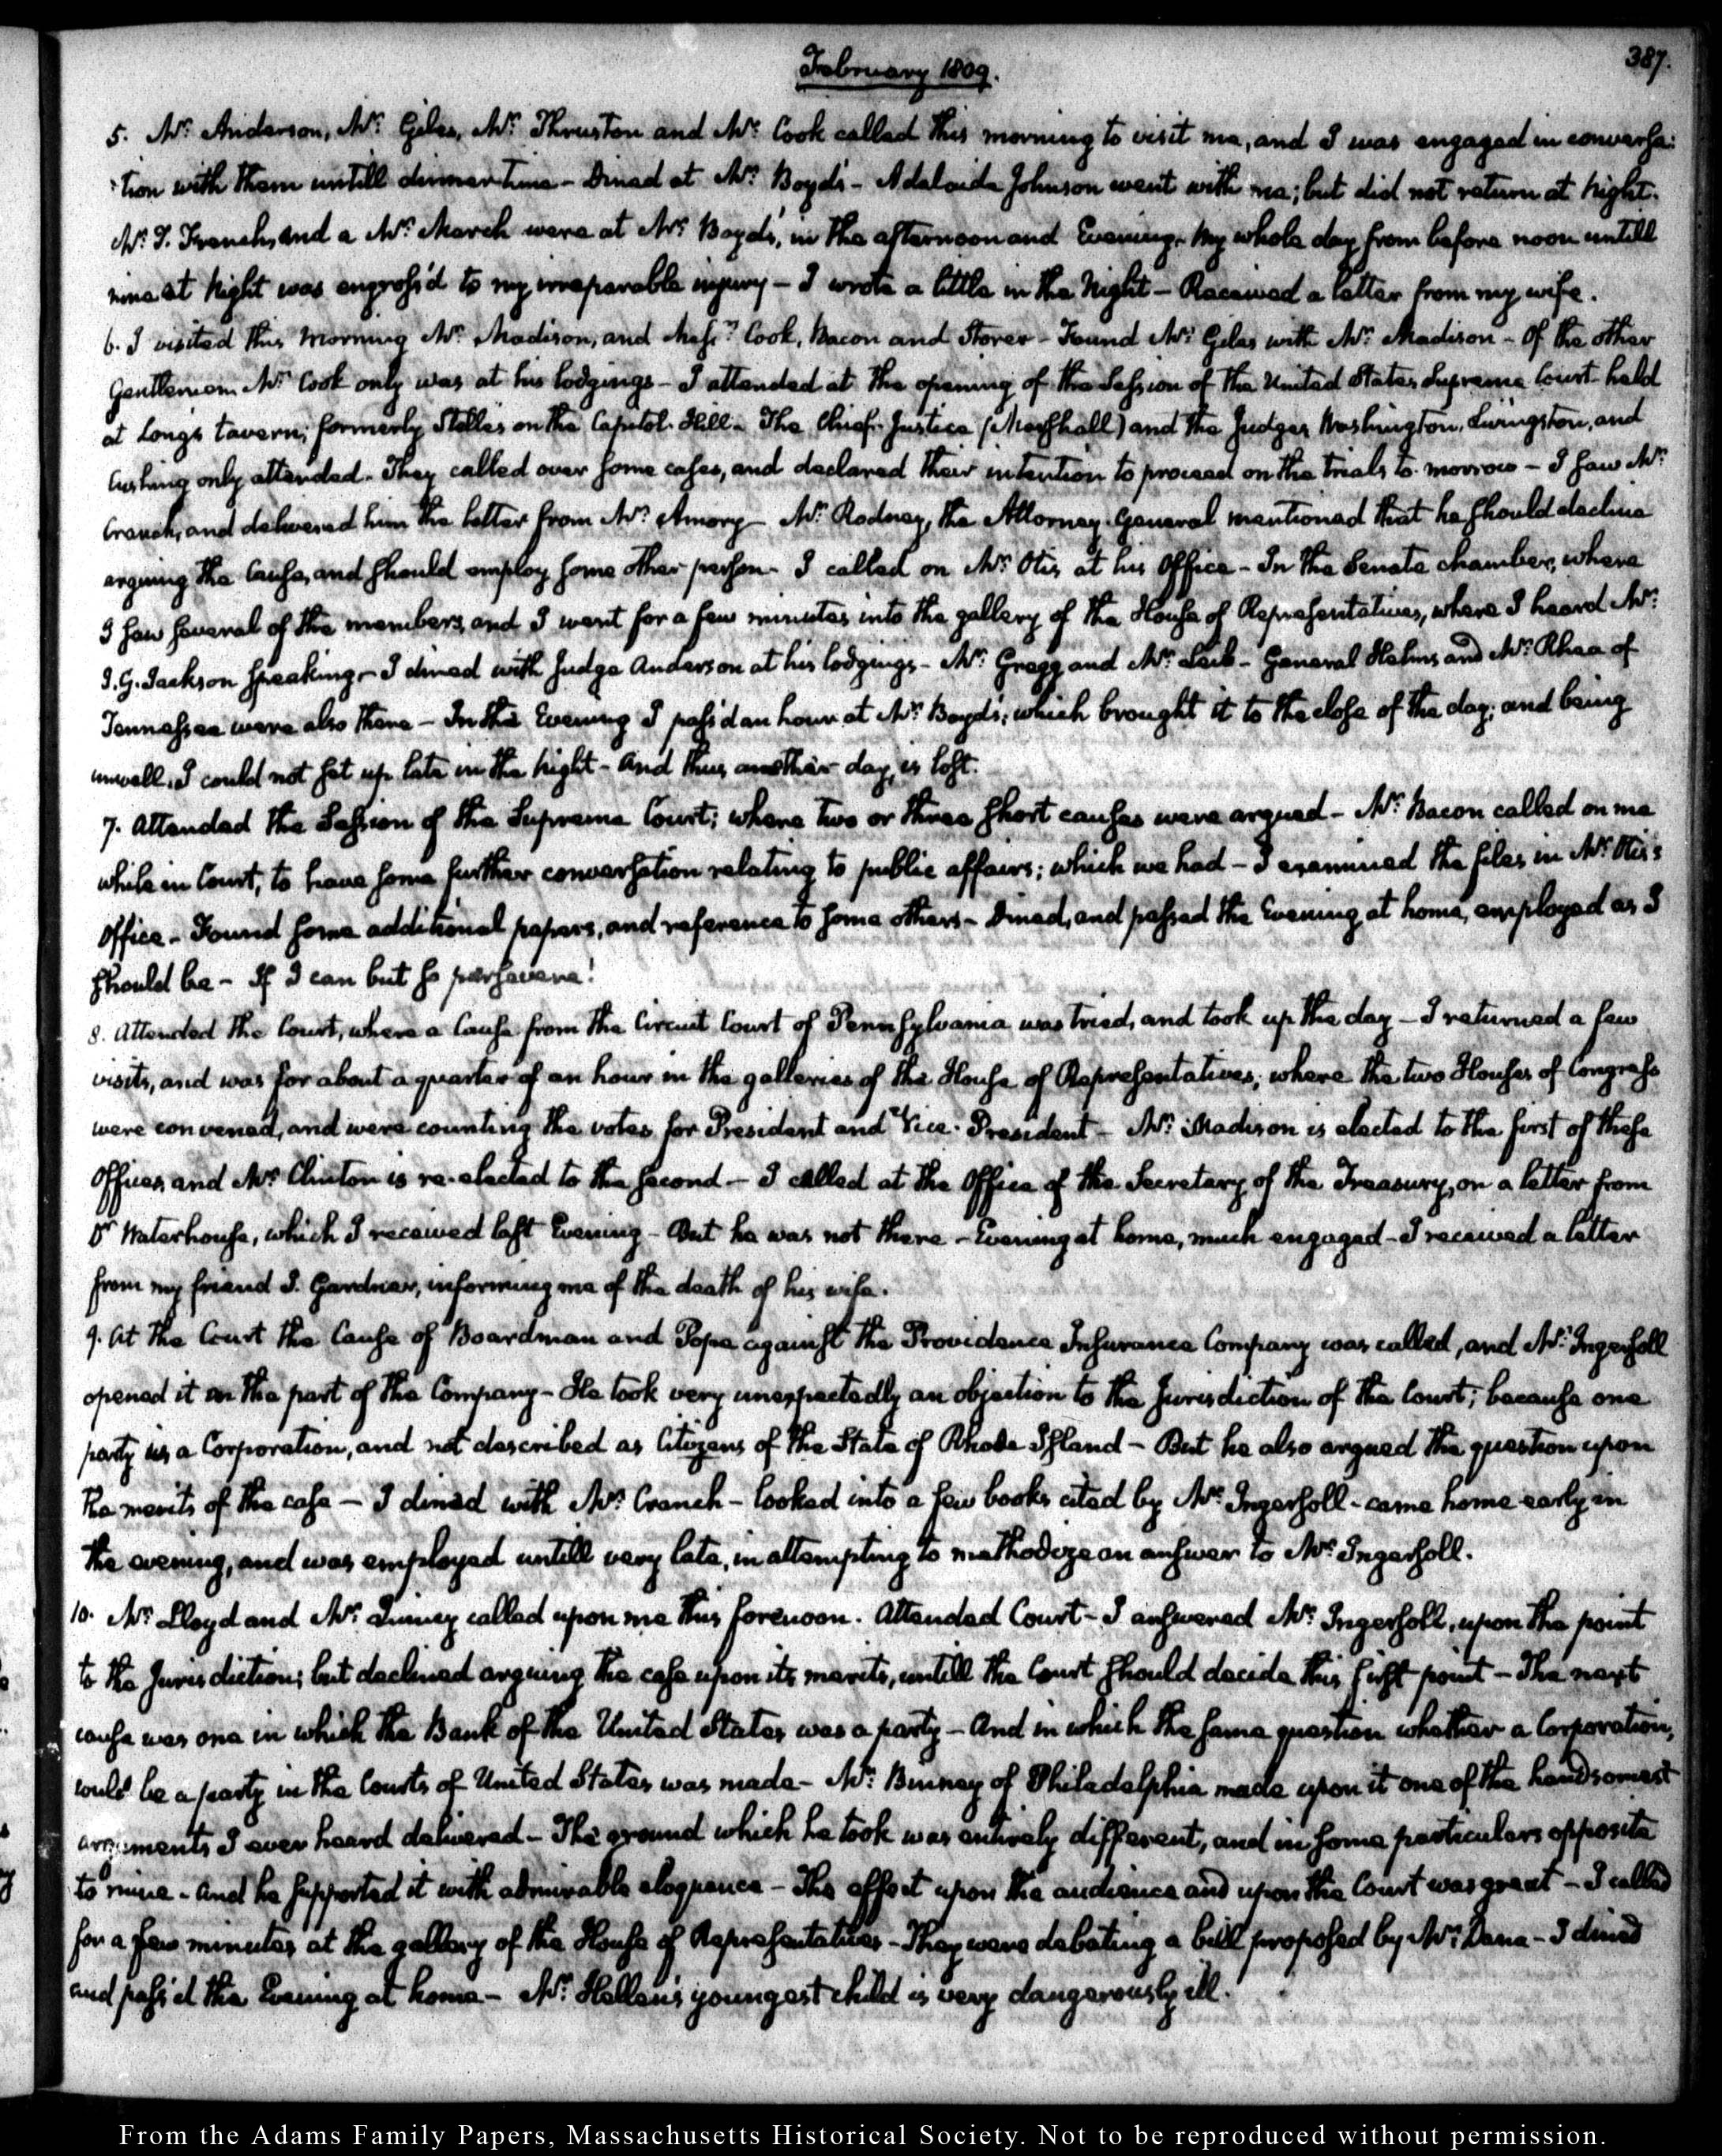 387.
February 1809.
5. Mr. Anderson, Mr. Giles, Mr. Thruston and Mr. Cook called this morning to visit me, and I was engaged in conversa:
:tion with them untill dinner time - Dined at Mr. Boyd's - Adelaide Johnson went with me; but did not return at Night.
Mr. T. French, and a Mr. March were at Mr. Boyd's, in the afternoon and Evening. My whole day from before noon untill
nine at Night was engross'd to my irreparable injury - I wrote a little in the Night - Received a letter from my wife.
6. I visited this Morning Mr. Madison, and Messrs. Cook, Bacon and Storer - Found Mr. Giles with Mr. Madison - Of the other
Gentlemen Mr. Cook only was at his lodgings - I attended at the opening of the Session of the United States Supreme Court held
at Long's tavern, formerly Stelle's on the Capitol-Hill - The Chief-Justice (Marshall) and the Judges Washington, Livingston, and
Cushing only attended - They called over some cases, and declared their intention to proceed on the trials to-morrow - I saw Mr.
Cranch, and delivered him the letter from Mr. Amory - Mr. Rodney, the Attorney General mentioned that he should decline
arguing the Cause, and should employ some other person - I called on Mr. Otis at his Office - In the Senate chamber, where
I saw several of the members, and I went for a few minutes into the gallery of the House of Representatives, where I heard Mr.
J. G. Jackson speaking - I dined with Judge Anderson at his lodgings - Mr. Gregg and Mr. Leib - General Helms and Mr. Rhea of
Tennessee were also there - In the Evening I pass'd an hour at Mr. Boyd's; which brought it to the close of the day; and being
unwell, I could not set up late in the Night - And thus another day is lost.
7. Attended the Session of the Supreme Court; where two or three short causes were argued - Mr. Bacon called on me
while in Court, to have some further conversation relating to public affairs; which we had - I examined the files in Mr. Otis's
Office - Found some additional papers, and reference to some others - Dined, and passed the Evening at home, employed as I
should be - If I can but so persevere!
8. Attended the Court, where a Cause from the Circuit Court of Pennsylvania was tried, and took up the day - I returned a few
visits, and was for about a quarter of an hour in the galleries of the House of Representatives, where the two Houses of Congress
were convened, and were counting the votes for President and Vice-President - Mr. Madison is elected to the first of these
Offices, and Mr. Clinton is re-elected to the second - I called at the Office of the Secretary of the Treasury, on a letter from
Dr Waterhouse, which I received last Evening - But he was not there - Evening at home, much engaged - I received a letter
from my friend J. Gardner, informing me of the death of his wife.
9. At the Court the Cause of Boardman and Pope against the Providence Insurance Company was called, and Mr. Ingersoll
opened it on the part of the Company - He took very unexpectedly an objection to the Jurisdiction of the Court; because one
party is a Corporation, and not described as Citizens of the State of Rhode Island - But he also argued the question upon
the merits of the case - I dined with Mr. Cranch - looked into a few books cited by Mr. Ingersoll - came home early in
the evening, and was employed untill very late, in attempting to methodize an answer to Mr. Ingersoll.
10. Mr. Lloyd and Mr. Quincy called upon me this forenoon. Attended Court - I answered Mr. Ingersoll, upon the point
to the Jurisdiction; but declined arguing the case upon its merits, untill the Court should decide this first point - The next
cause was one in which the Bank of the United States was a party - And in which the same question whether a Corporation,
could be a party in the Courts of United States was made - Mr. Binney of Philadelphia made upon it one of the handsomest
arguments I ever heard delivered - The ground which he took was entirely different, and in some particulars opposite
to mine - And he supported it with admirable eloquence - The effect upon the audience and upon the Court was great - I called
for a few minutes at the gallery of the House of Representatives - They were debating a bill proposed by Mr. Dana - I dined
and pass'd the Evening at home - Mr. Hellen's youngest child is very dangerously ill.
From the Adams Family Papers, Massachusetts Historical Society. Not to be reproduced without permission.